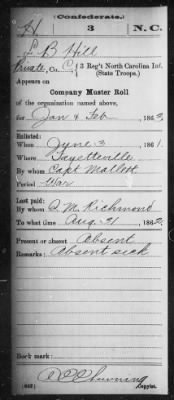 (Confederate.)
H 3 N.C.
L B Hill
Private, Co. C, 3 Reg't North Carolina Inf.
(State Troops.)
Appears on
Company Muster Roll
of the organization named above,
for Jan & Feb, 1863.
Enlisted:
When June 3, 1861.
Where Fayetteville
By whom Capt Mallett
Period War
Last paid:
By whom S. M. Richmond
To what time Aug. 31, 1862.
Present or absent Absent
Remarks: Absent sick
Book mark:
Copyist.